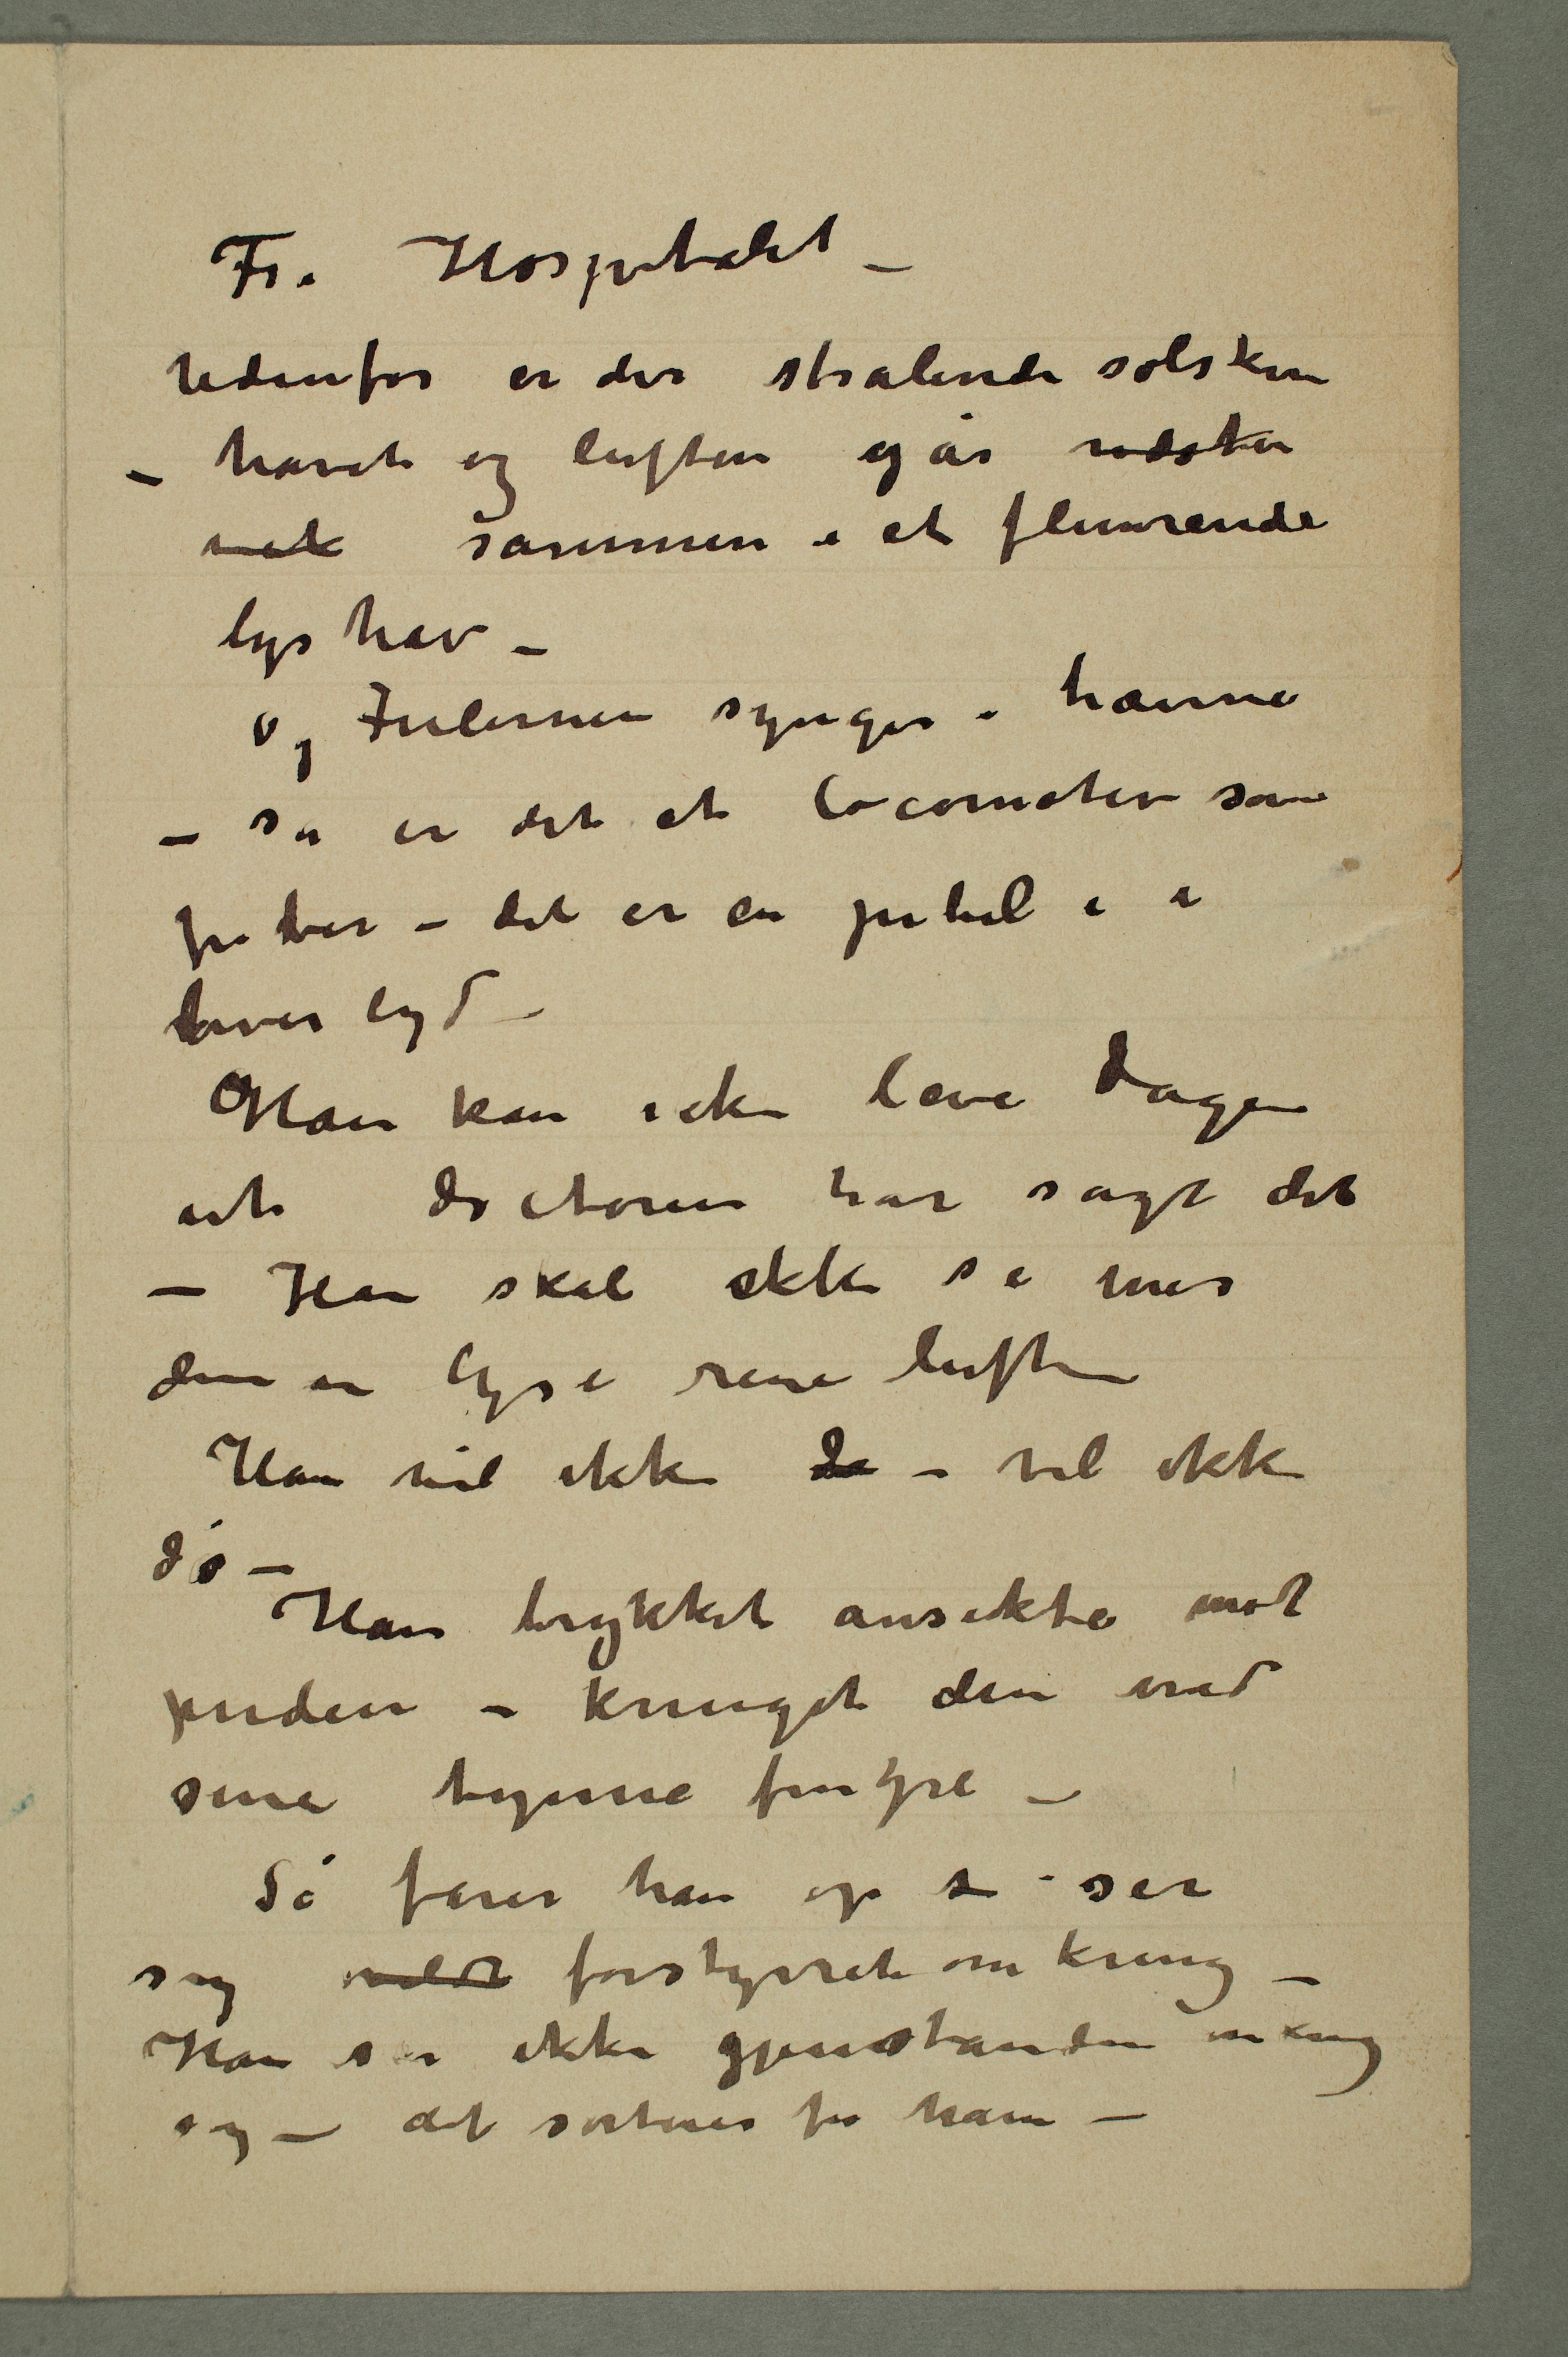 Fra Hospitalet –
Udenfor er der strålende solsken
– havet og luften går næsten
næk sammen i et flimrende
lyshav –
og Fulernen synger i havne
– så er det et locomotiv som
piber – det er en jubel i i
hver lyd –
Han kan ikke leve dagen
ut doctoren har sagt det
– Han skal ikke se mer
denne lyse rene luften
Han vil ikke dø – vil ikke
dø –
Han trykket ansiktet mod
puden – kruget den med
sine tynne fingre –
Så farer han op s – ser
sig vildt forstyrret omkring –
Han ser ikke gjenstanden omkring
sig – det sortner for ham –